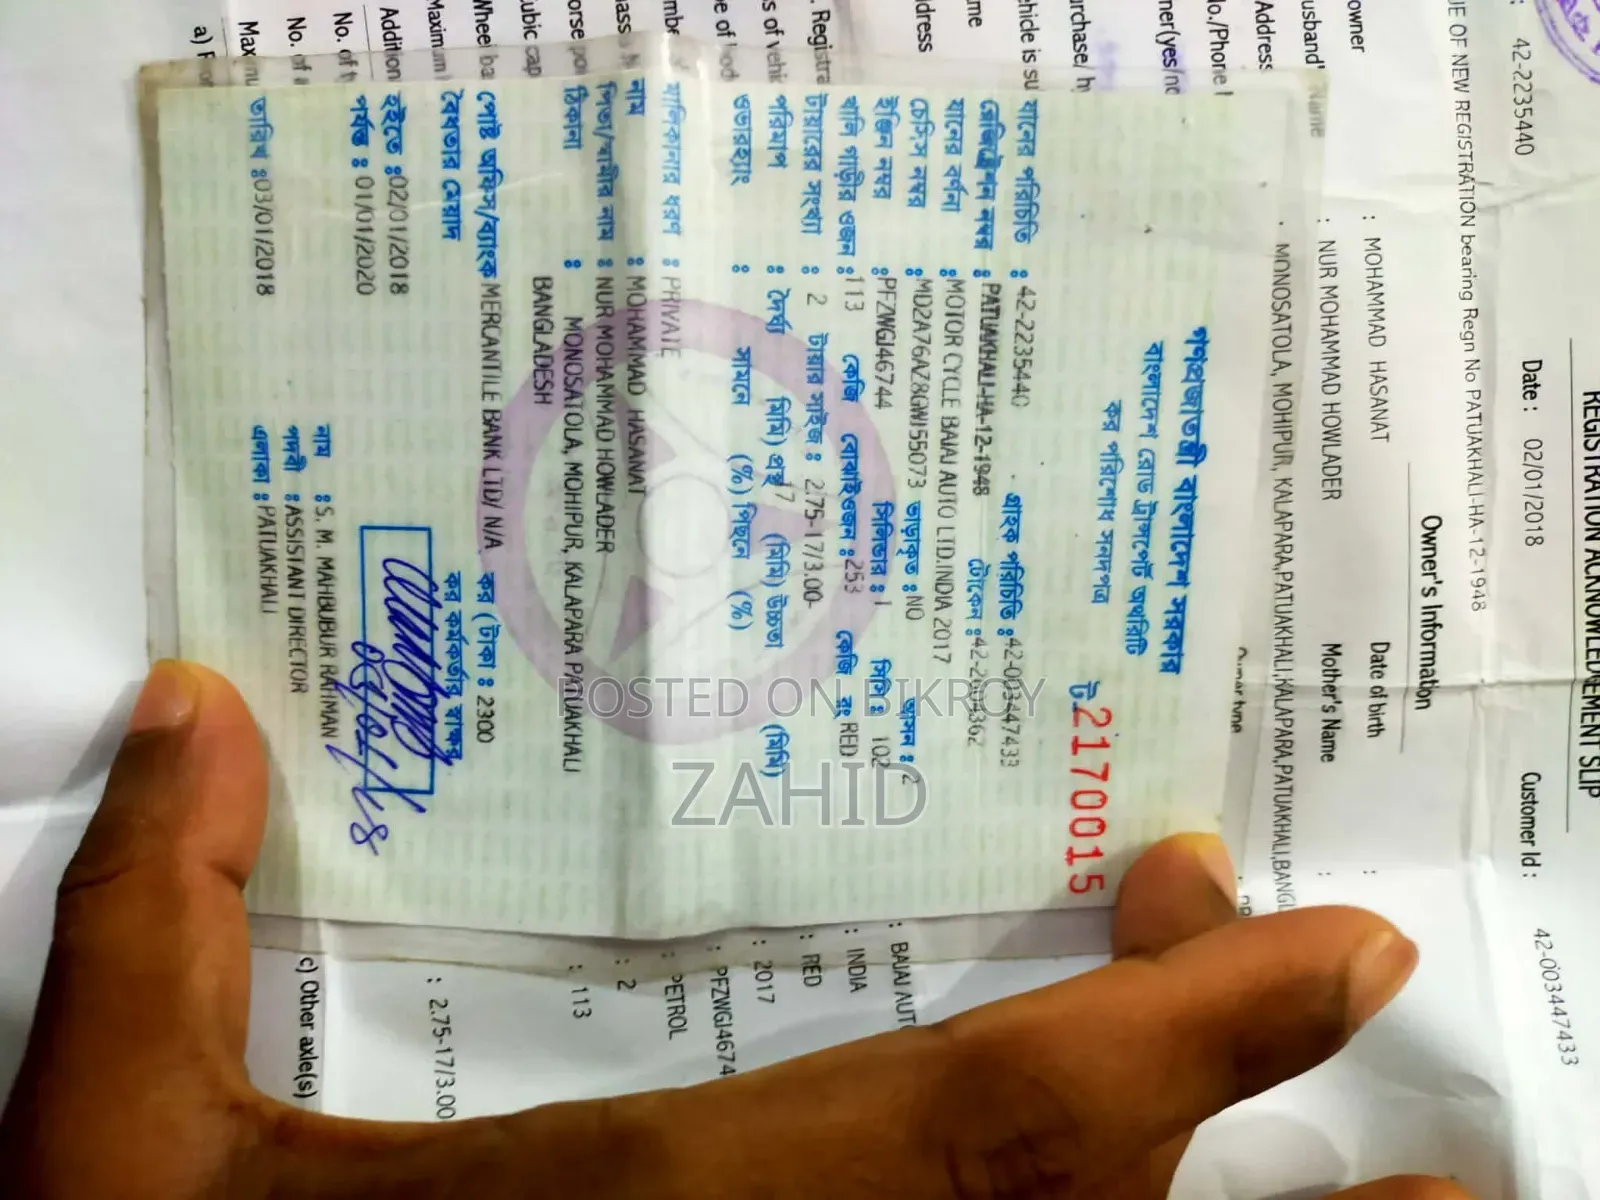 গণপ্রজাতন্ত্রী বাংলাদেশ সরকার
বাংলাদেশ রোড ট্রান্সপোর্ট অথরিটি
কর পরিশোধ সনদপত্র
ট 2170015
যানের পরিচিতি : 42-2235440 গ্রাহক পরিচিতি : 42-003447433
রেজিষ্ট্রেশন নম্বর : PATUAKHALI-HA-12-1948 টোকেন : 42-2604362
যানের বর্ণনা : MOTOR CYCLE BAJAJ AUTO LTD.INDIA 2017
চেসিস নম্বর : MD2A76AZ8GWJ55073 ভাড়াকৃত : NO আসন : 2
ইঞ্জিন নম্বর : PFZWGJ46744 সিলিন্ডার : 1 সিসি : 102
খালি গাড়ীর ওজন : 113 কেজি বোঝাইওজন : 253 কেজি রং RED
টায়ারের সংখ্যা : 2 টায়ার সাইজ : 2.75-17/3.00-
17
পরিমাপ : দৈর্ঘ্য (মিমি) প্রস্থ (মিমি) উচ্চতা (মিমি)
ওভারহ্যাং : সামনে (%) পিছনে (%)
মালিকানার ধরণ : PRIVATE
নাম : MOHAMMAD HASANAT
পিতা/স্বামীর নাম : NUR MOHAMMAD HOWLADER
ঠিকানা : MONOSATOLA, MOHIPUR, KALAPARA PATUAKHALI
BANGLADESH
পোষ্ট অফিস/ব্যাংক MERCANTILE BANK LTD/ N/A কর (টাকা : 2300
বৈধতার মেয়াদ কর কর্মকর্তার স্বাক্ষর
হইতে : 02/01/2018
পর্যন্ত : 01/01/2020
নাম : S. M. MAHBUBUR RAHMAN
পদবী : ASSISTANT DIRECTOR
তারিখ : 03/01/2018 এলাকা : PATUAKHALI
REGISTRATION ACKNOWLEDGEMENT SLIP
: 42-2235440 Date : 02/01/2018 Customer Id : 42-003447433
UE OF NEW REGISTRATION bearing Regn No PATUAKHALI-HA-12-1948
Owner's Information
owner : MOHAMMAD HASANAT Date of birth :
usband' Name : NUR MOHAMMAD HOWLADER Mother's Name :
Address : MONOSATOLA, MOHIPUR, KALAPARA,PATUAKHALI,KALAPARA,PATUAKHALI,BANGL
No./Phone Owner type
ner(yes/no
urchase, h
ehicle is su
me
ddress : BAJAJ AUTO
: INDIA
. Registra : RED
s of vehic : 2017
e of bod : PFZWGJ4674
: PETROL
: 2
: 113
Cubic cap
Wheel ba
Maximum
Addition : 2.75-17/3.00
No. of t
No. of a c) Other axle(s)
Maximu
a) Fron
POSTED ON BIKROY
ZAHID